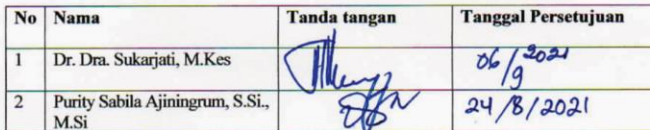 No Nama Tanda tangan Tanggal Persetujuan
1 Dr. Dra. Sukarjati, M.Kes 06/9 2021
2 Purity Sabila Ajiningrum, S.Si., 24/8/2021
M.Si